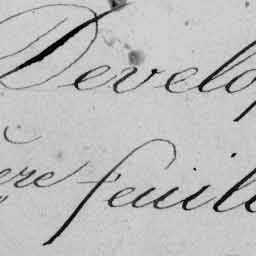 Develop
ère feuill